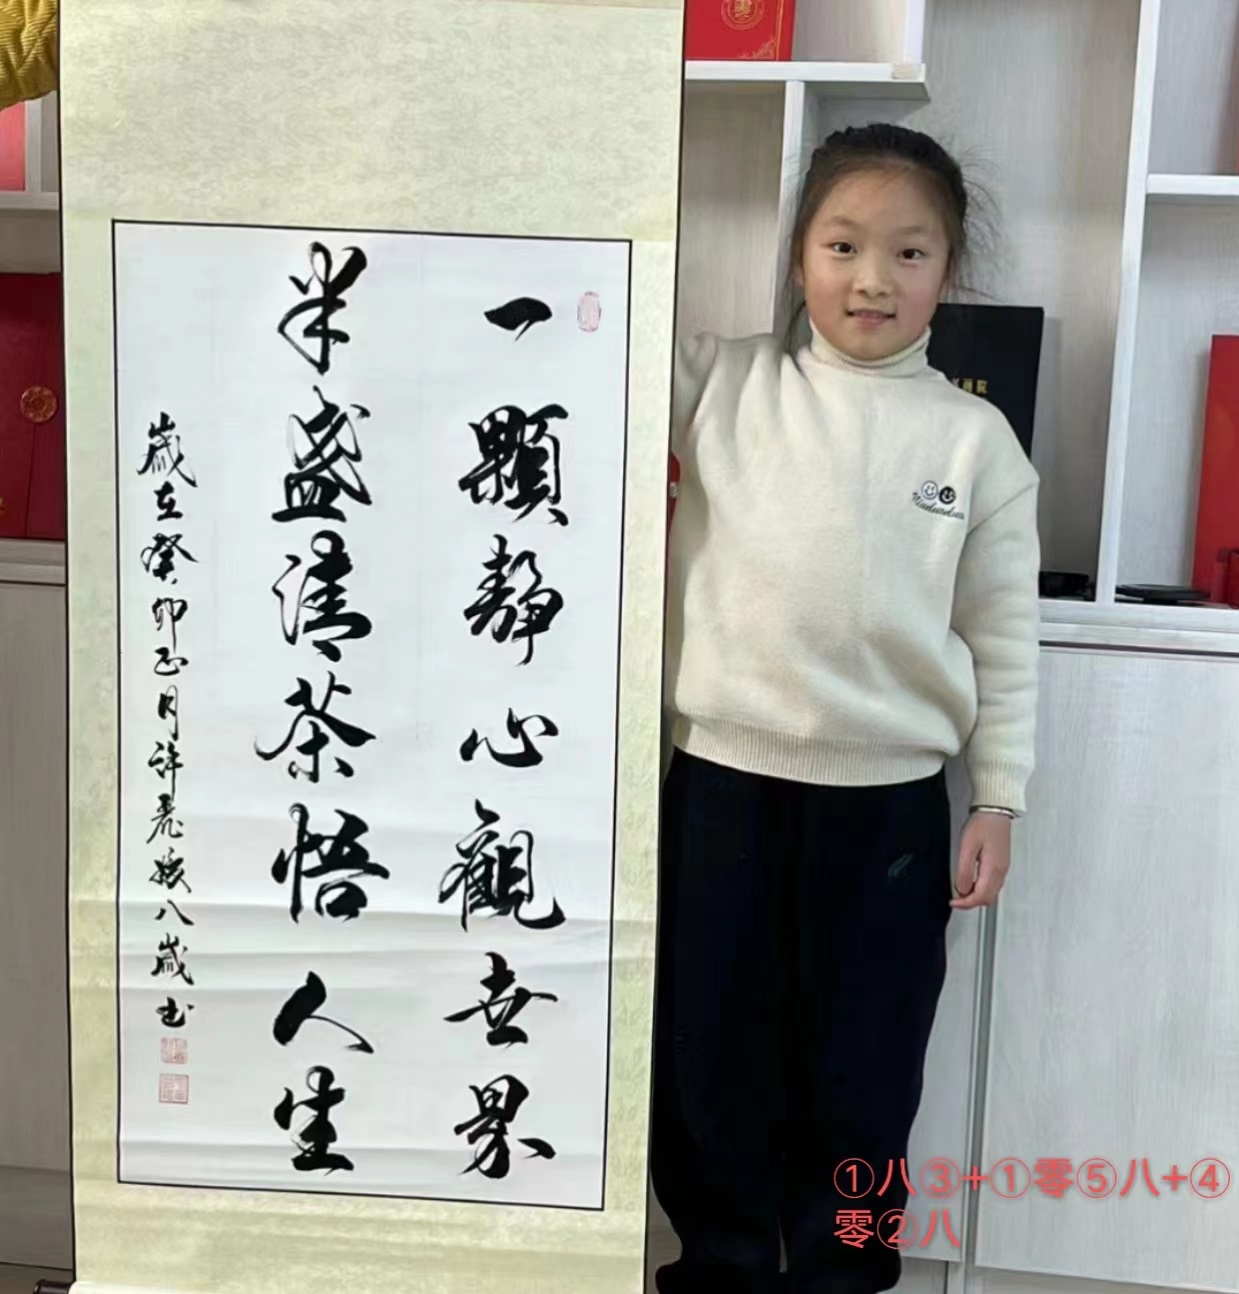 一顆靜心觀世界
半盞清茶悟人生
歲在癸卯正月許
八歲書
①八③+①零⑤八+④
零②八